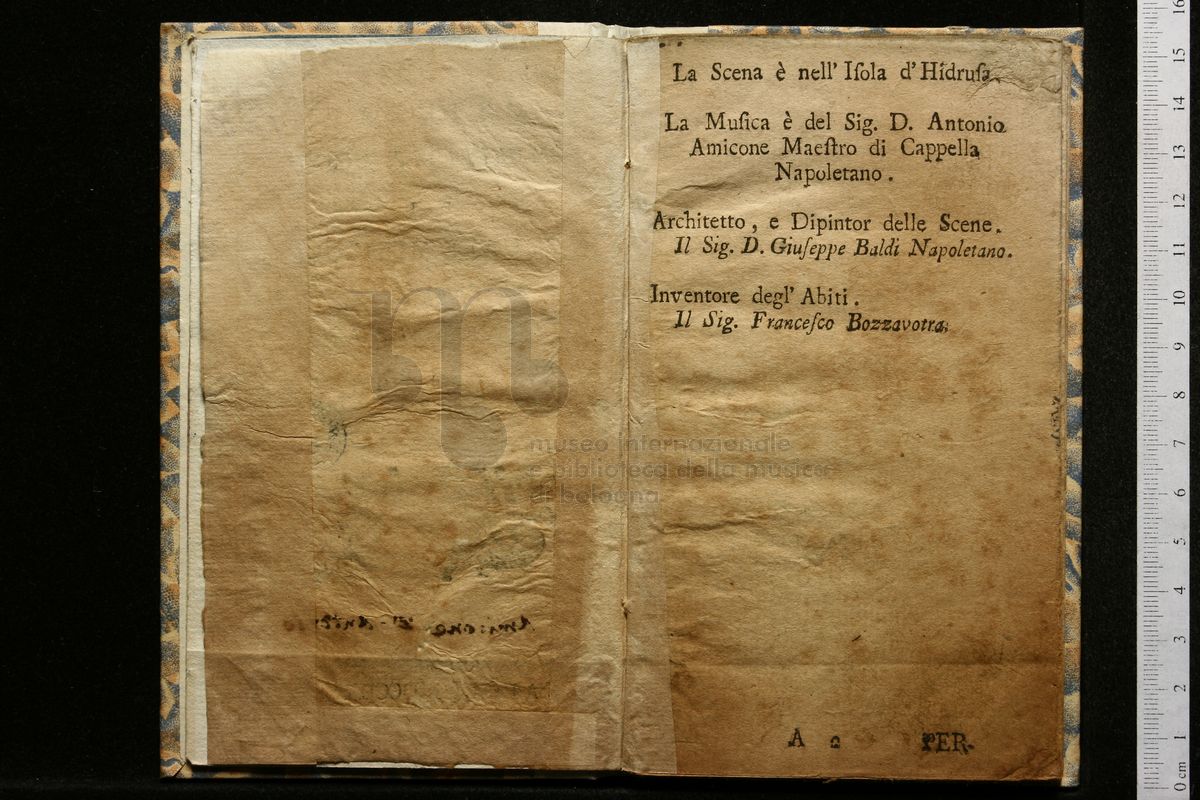 La Scena è nell' Iſola d'Hidruſa.
La Muſica è del Sig. D. Antonio
Amicone Maeſtro di Cappella
Napoletano.
Architetto, e Dipintor delle Scene.
Il Sig. D. Giuſeppe Baldi Napoletano.
Inventore degl' Abiti.
Il Sig. Franceſco Bozzavotra.
A 2
PER-
museo internazionale
e biblioteca della musica
di bologna
0 cm
1
2
3
4
5
6
7
8
9
10
11
12
13
14
15
16